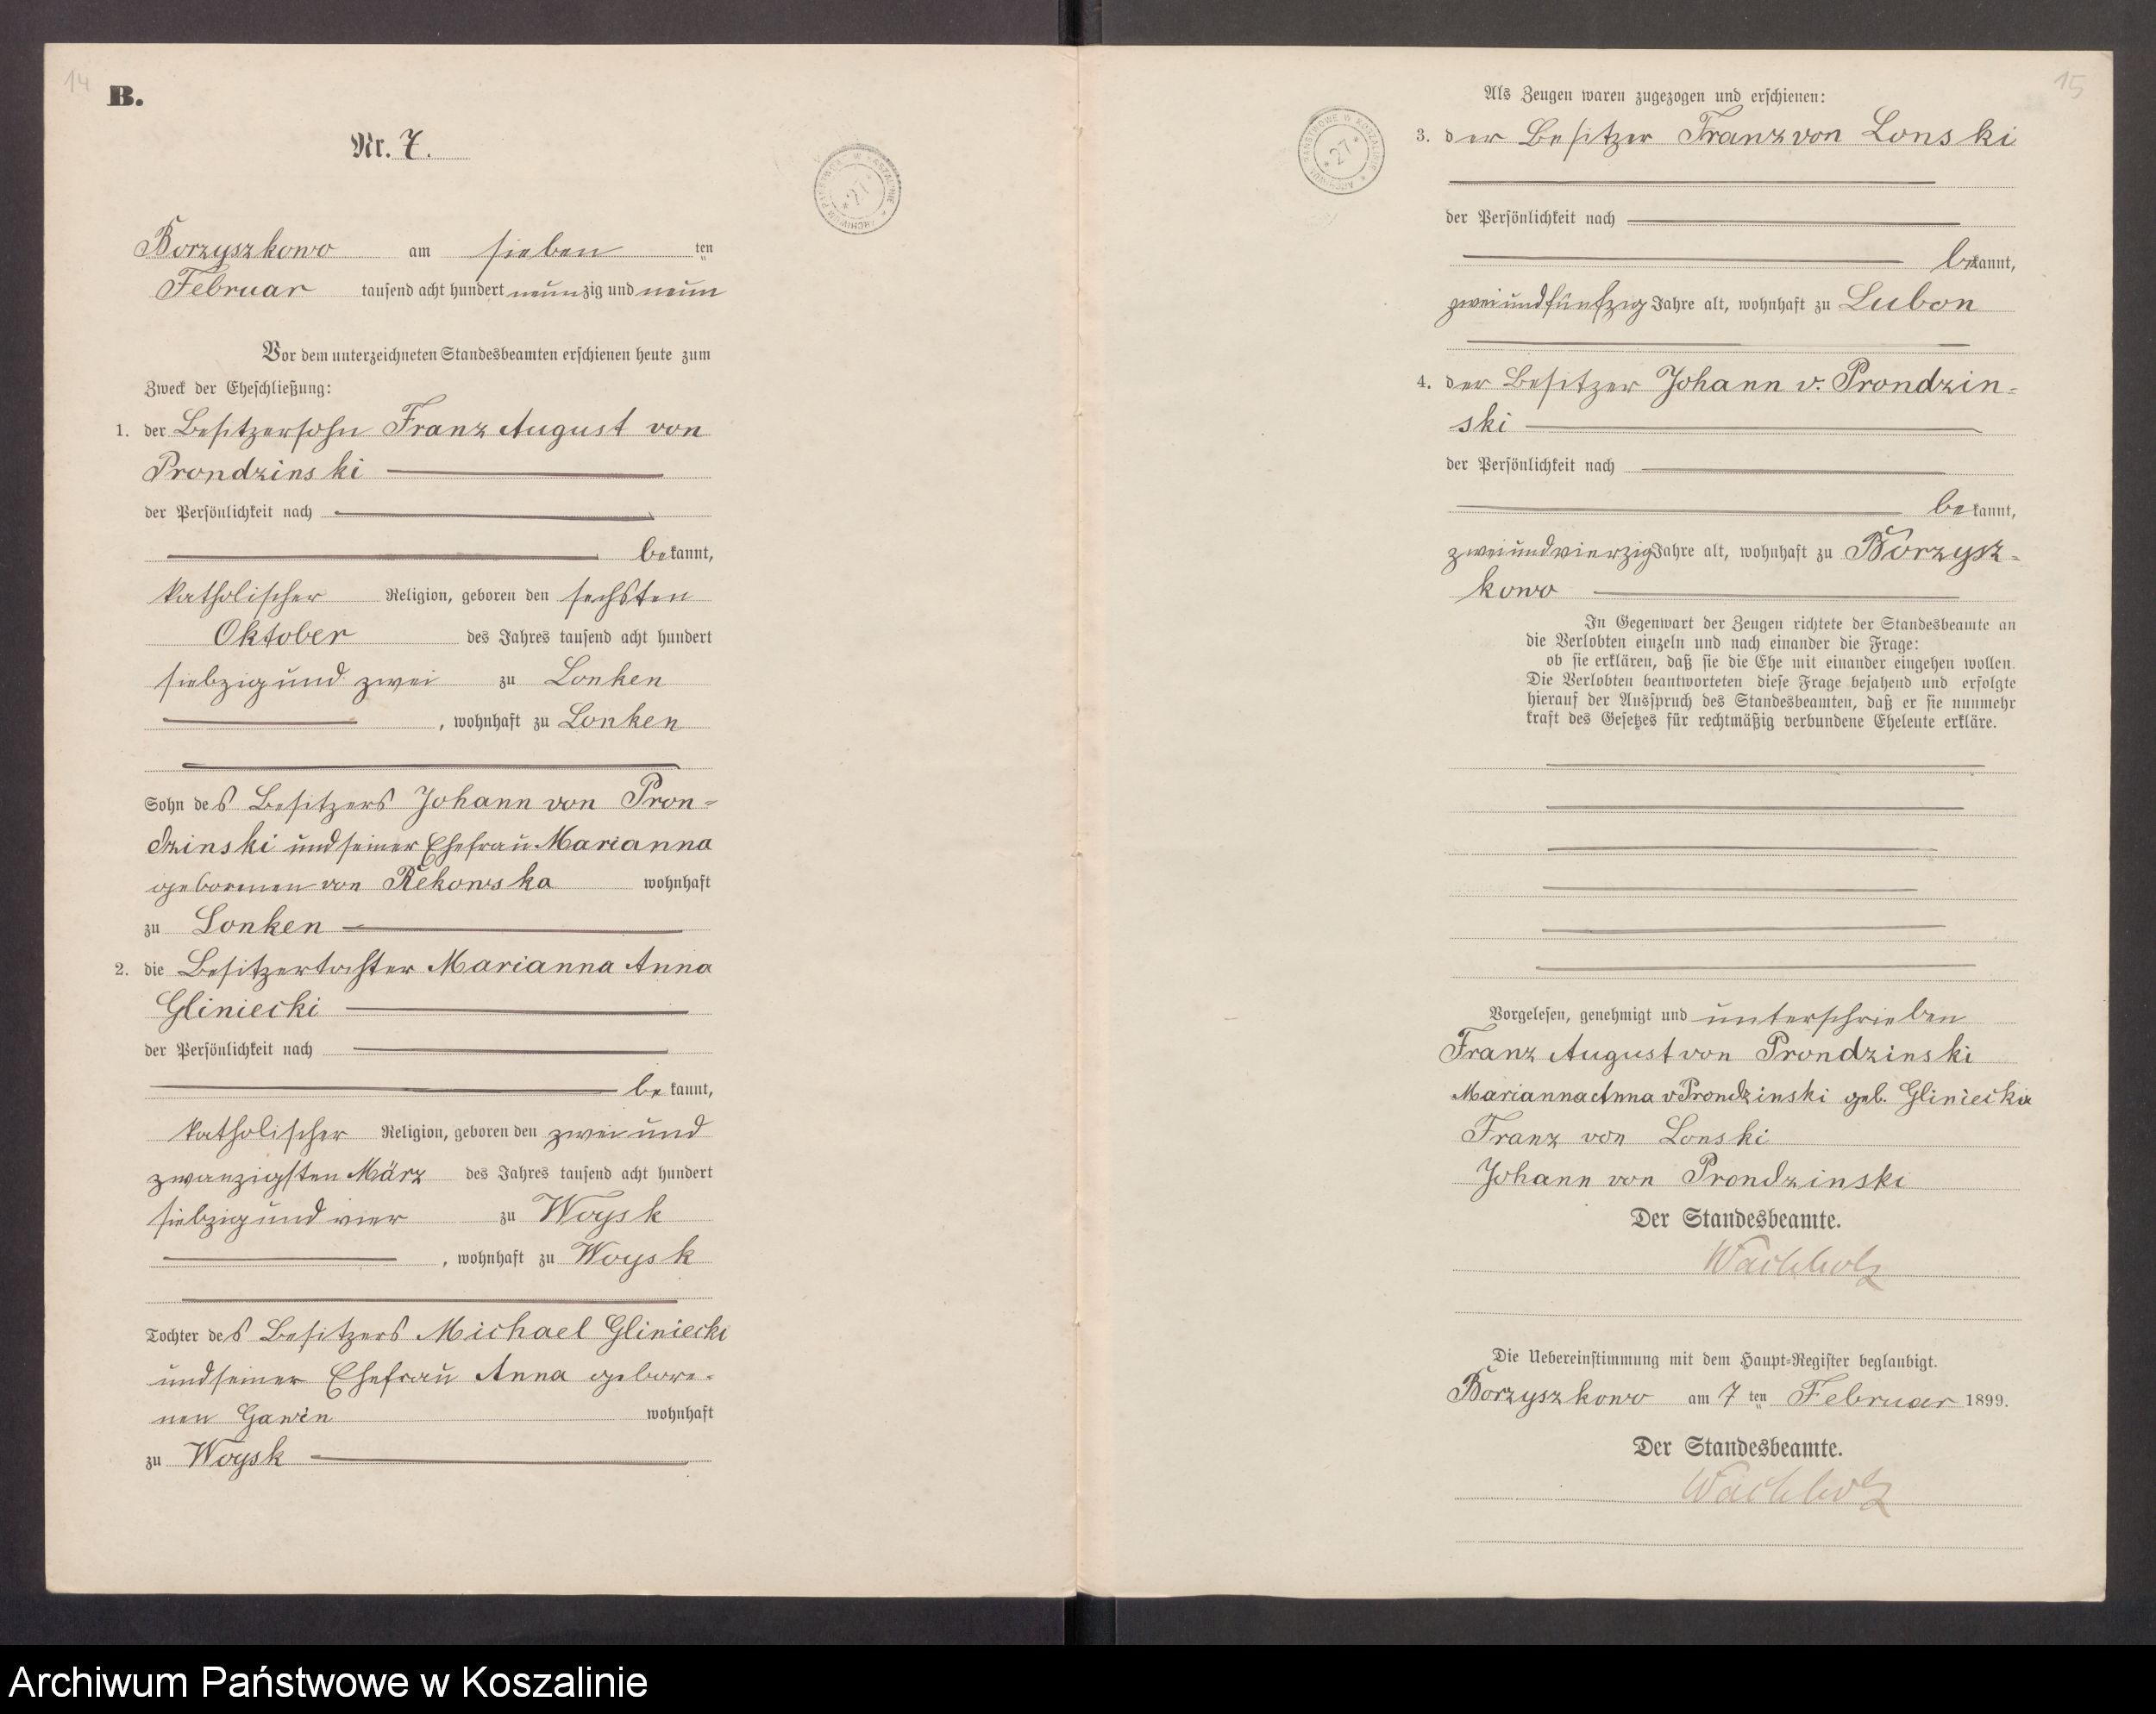 14
B.
Nr. 7.
ARCHIWUM PAŃSTWOWE W KOSZALINIE * 27 *
Borzyszkowo am sieben ten
Februar tausend acht hundert neunzig und neun
Vor dem unterzeichneten Standesbeamten erschienen heute zum
Zweck der Eheschließung:
1. der Besitzersohn Franz August von
Prondzinski
der Persönlichkeit nach
bekannt,
katholischer Religion, geboren den sechsten
Oktober des Jahres tausend acht hundert
siebzig und zwei zu Lonken
, wohnhaft zu Lonken
Sohn des Besitzers Johann von Pron-
dzinski und seiner Ehefrau Marianna
geborenen von Rekowska wohnhaft
zu Lonken
2. die Besitzertochter Marianna Anna
Gliniecki
der Persönlichkeit nach
bekannt,
katholischer Religion, geboren den zwei und
zwanzigsten März des Jahres tausend acht hundert
siebzig und vier zu Woysk
, wohnhaft zu Woysk
Tochter des Besitzers Michael Gliniecki
und seiner Ehefrau Anna gebore-
nen Gawin wohnhaft
zu Woysk
15
ARCHIWUM PAŃSTWOWE W KOSZALINIE * 27 *
Als Zeugen waren zugezogen und erschienen:
3. der Besitzer Franz von Lonski
der Persönlichkeit nach
bekannt,
zweiundfünfzig Jahre alt, wohnhaft zu Lubon
4. der Besitzer Johann v. Prondzin-
ski
der Persönlichkeit nach
bekannt,
zweiundvierzig Jahre alt, wohnhaft zu Borzysz-
kowo
In Gegenwart der Zeugen richtete der Standesbeamte an
die Verlobten einzeln und nach einander die Frage:
ob sie erklären, daß sie die Ehe mit einander eingehen wollen.
Die Verlobten beantworteten diese Frage bejahend und erfolgte
hierauf der Ausspruch des Standesbeamten, daß er sie nunmehr
kraft des Gesetzes für rechtmäßig verbundene Eheleute erkläre.
Vorgelesen, genehmigt und unterschrieben
Franz August von Prondzinski
Marianna Anna v Prondzinski geb. Gliniecka
Franz von Lonski
Johann von Prondzinski
Der Standesbeamte.
Wachholz
Die Uebereinstimmung mit dem Haupt-Register beglaubigt.
Borzyszkowo am 7 ten Februar 1899.
Der Standesbeamte.
Wachholz
Archiwum Państwowe w Koszalinie